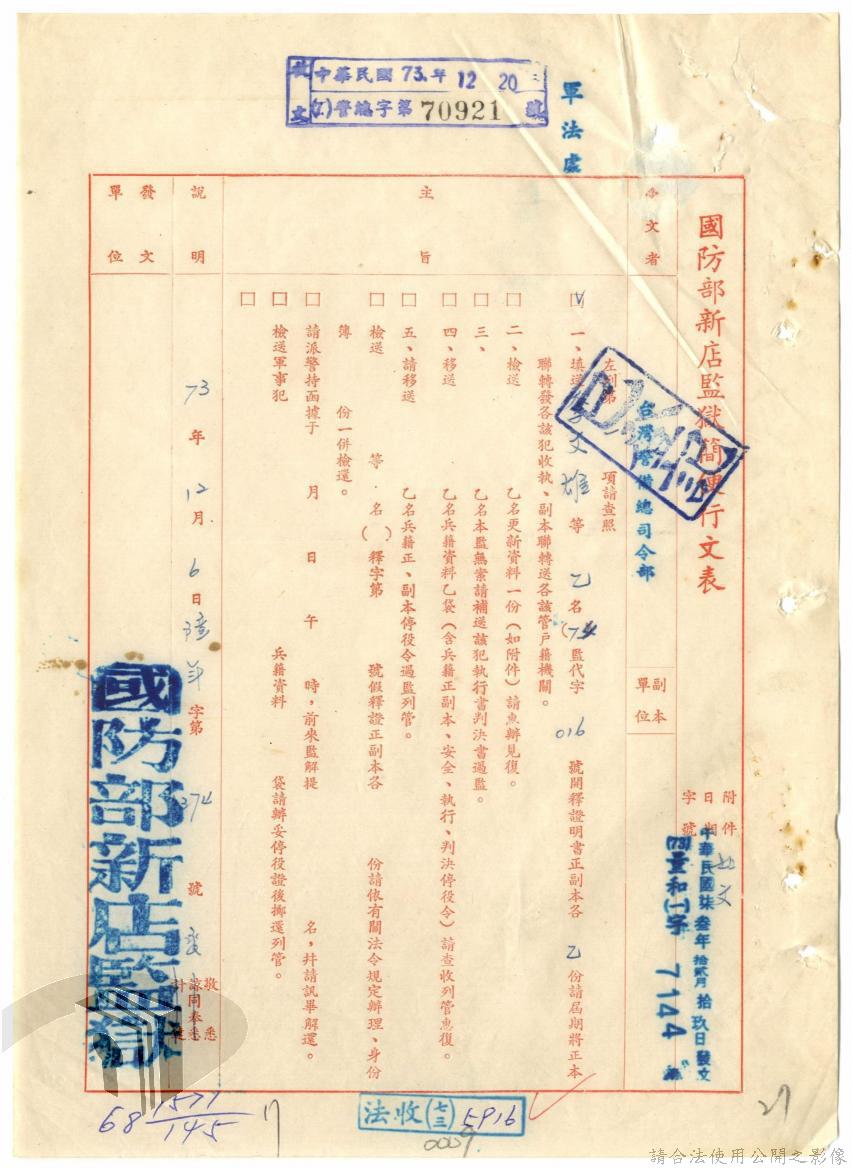 發文
中華民國73.年12 20
警總字第70921號
軍法處
國防部新店監獄簡便行文表
附件 如文
日期
字號
中華民國柒叁年拾貳月拾玖日發文
(73)量和(一)字 7144 號
受文者
台灣警備總司令部
副本
單位
主旨
左列第 項請查照
一、填送 文雄 等 乙名( 監代字 016 號開釋證明書正副本各 乙 份請屆期將正本
聯轉發各該犯收執、副本聯轉送各該管戶籍機關。
二、檢送 乙名更新資料一份(如附件)請惠辦見復。
三、 乙名本監無案請補送該犯執行書判決書過監。
四、移送 乙名兵籍資料乙袋(含兵籍正副本、安全、執行、判決停役令)請查收列管惠復。
五、請移送 乙名兵籍正、副本停役令過監列管。
檢送 等 名( )釋字第 號假釋證正副本各 份請依有關法令規定辦理、身份
簿 份一併檢還。
請派警持函據于 月 日 午 時,前來監解提 名,并請訊畢解還。
檢送軍事犯 兵籍資料 袋請辦妥停役證後擲還列管。
說明
73年12月6日 字第 號
敬悉
諒同奉悉
計達
發文
單位
國防部新店監獄
68 1571/145
法收(七三)5916
0009
27
請合法使用公開之影像